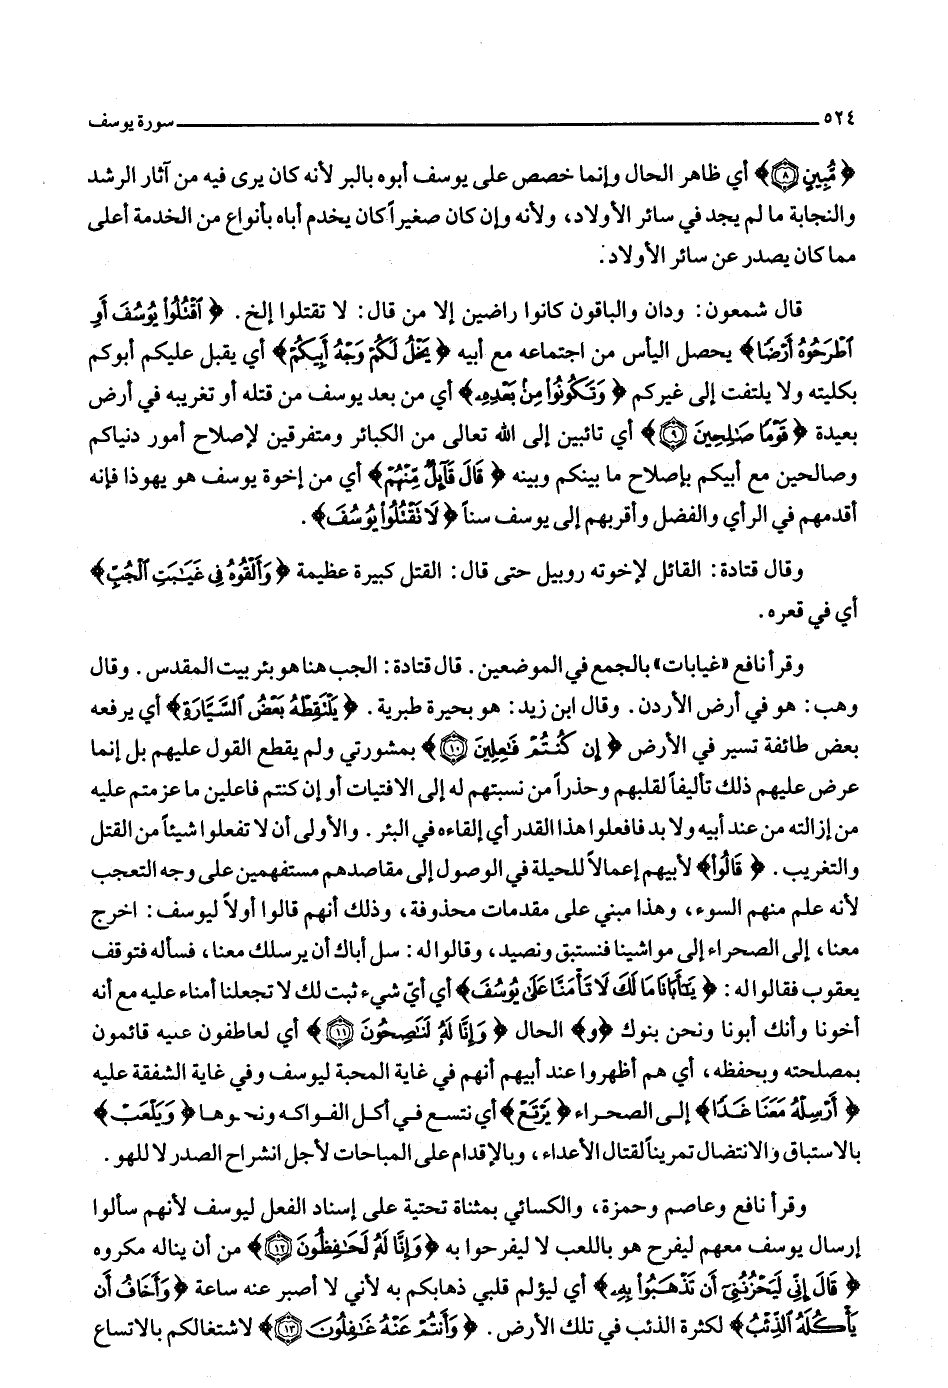 ٥٢٤ سورة يوسف
﴿ مُّبِينٍ ﴿٨﴾﴾ أي ظاهر الحال وإنما خصص على يوسف أبوه بالبر لأنه كان يرى فيه من آثار الرشد
والنجابة ما لم يجد في سائر الأولاد، ولأنه وإن كان صغيراً كان يخدم أباه بأنواع من الخدمة أعلى
مما كان يصدر عن سائر الأولاد.
قال شمعون: ودان والباقون كانوا راضين إلا من قال: لا تقتلوا إلخ. ﴿ ٱقْتُلُوا۟ يُوسُفَ أَوِ
ٱطْرَحُوهُ أَرْضًا﴾ يحصل اليأس من اجتماعه مع أبيه ﴿ يَخْلُ لَكُمْ وَجْهُ أَبِيكُمْ﴾ أي يقبل عليكم أبوكم
بكليته ولا يلتفت إلى غيركم ﴿ وَتَكُونُوا۟ مِنۢ بَعْدِهِۦ﴾ أي من بعد يوسف من قتله أو تغريبه في أرض
بعيدة ﴿ قَوْمًا صَٰلِحِينَ ﴿٩﴾﴾ أي تائبين إلى الله تعالى من الكبائر ومتفرقين لإصلاح أمور دنياكم
وصالحين مع أبيكم بإصلاح ما بينكم وبينه ﴿ قَالَ قَآئِلٌ مِّنْهُمْ﴾ أي من إخوة يوسف هو يهوذا فإنه
أقدمهم في الرأي والفضل وأقربهم إلى يوسف سناً ﴿لَا تَقْتُلُوا۟ يُوسُفَ﴾.
وقال قتادة: القائل لإخوته روبيل حتى قال: القتل كبيرة عظيمة ﴿ وَأَلْقُوهُ فِى غَيَٰبَتِ ٱلْجُبِّ﴾
أي في قعره.
وقرأ نافع «غيابات» بالجمع في الموضعين. قال قتادة: الجب هنا هو بئر بيت المقدس. وقال
وهب: هو في أرض الأردن. وقال ابن زيد: هو بحيرة طبرية. ﴿ يَلْتَقِطْهُ بَعْضُ ٱلسَّيَّارَةِ﴾ أي يرفعه
بعض طائفة تسير في الأرض ﴿ إِن كُنتُمْ فَٰعِلِينَ ﴿١٠﴾﴾ بمشورتي ولم يقطع القول عليهم بل إنما
عرض عليهم ذلك تأليفاً لقلبهم وحذراً من نسبتهم له إلى الافتيات أو إن كنتم فاعلين ما عزمتم عليه
من إزالته من عند أبيه ولا بد فافعلوا هذا القدر أي إلقاءه في البئر. والأولى أن لا تفعلوا شيئاً من القتل
والتغريب. ﴿ قَالُوا۟﴾ لأبيهم إعمالاً للحيلة في الوصول إلى مقاصدهم مستفهمين على وجه التعجب
لأنه علم منهم السوء، وهذا مبني على مقدمات محذوفة، وذلك أنهم قالوا أولاً ليوسف: اخرج
معنا، إلى الصحراء إلى مواشينا فنستبق ونصيد، وقالوا له: سل أباك أن يرسلك معنا، فسأله فتوقف
يعقوب فقالوا له: ﴿ يَٰٓأَبَانَا مَا لَكَ لَا تَأْمَ۫نَّا عَلَىٰ يُوسُفَ﴾ أي أيّ شيء ثبت لك لا تجعلنا أمناء عليه مع أنه
أخونا وأنك أبونا ونحن بنوك ﴿و﴾ الحال ﴿ وَإِنَّا لَهُۥ لَنَٰصِحُونَ ﴿١١﴾﴾ أي لعاطفون عليه قائمون
بمصلحته وبحفظه، أي هم أظهروا عند أبيهم أنهم في غاية المحبة ليوسف وفي غاية الشفقة عليه
﴿ أَرْسِلْهُ مَعَنَا غَدًا﴾ إلى الصحراء ﴿ يَرْتَعْ﴾ أي نتسع في أكل الفواكه ونحوها ﴿ وَيَلْعَبْ﴾
بالاستباق والانتضال تمريناً لقتال الأعداء، وبالإقدام على المباحات لأجل انشراح الصدر لا للهو.
وقرأ نافع وعاصم وحمزة، والكسائي بمثناة تحتية على إسناد الفعل ليوسف لأنهم سألوا
إرسال يوسف معهم ليفرح هو باللعب لا ليفرحوا به ﴿وَإِنَّا لَهُۥ لَحَٰفِظُونَ ﴿١٢﴾﴾ من أن يناله مكروه
﴿ قَالَ إِنِّى لَيَحْزُنُنِىٓ أَن تَذْهَبُوا۟ بِهِۦ﴾ أي ليؤلم قلبي ذهابكم به لأني لا أصبر عنه ساعة ﴿وَأَخَافُ أَن
يَأْكُلَهُ ٱلذِّئْبُ﴾ لكثرة الذئب في تلك الأرض. ﴿ وَأَنتُمْ عَنْهُ غَٰفِلُونَ ﴿١٣﴾﴾ لاشتغالكم بالاتساع